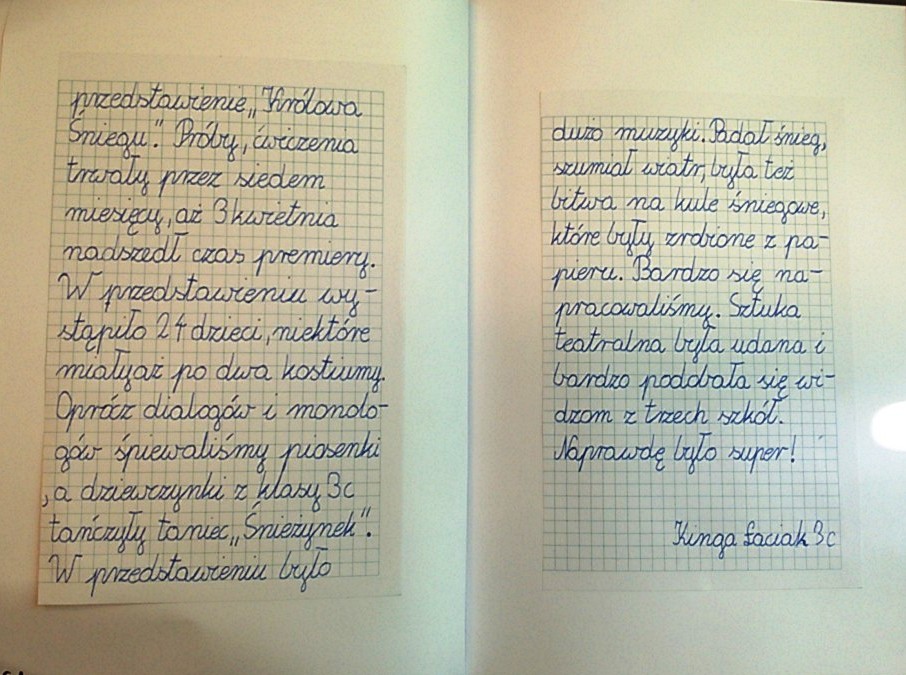 przedstawienie „Królowa
Śniegu”. Próby, ćwiczenia
trwały przez siedem
miesięcy, aż 3 kwietnia
nadszedł czas premiery.
W przedstawieniu wy-
stąpiło 24 dzieci, niektóre
miały aż po dwa kostiumy.
Oprócz dialogów i monolo-
gów śpiewaliśmy piosenki
, a dziewczynki z klasy 3c
tańczyły taniec „Śnieżynek”.
W przedstawieniu było
dużo muzyki. Padał śnieg,
szumiał wiatr, była też
bitwa na kule śniegowe,
które były zrobione z pa-
pieru. Bardzo się na-
pracowaliśmy. Sztuka
teatralna była udana i
bardzo podobała się wi-
dzom z trzech szkół.
Naprawdę było super!
Kinga Łaciak 3c